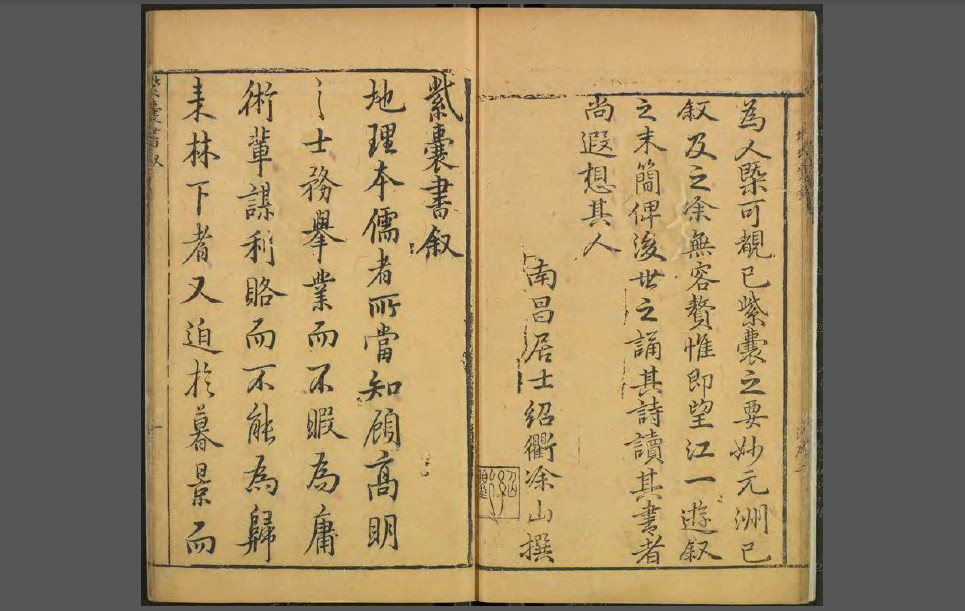 為人槩可覩已紫囊之要妙元洲已
叙及之余無容贅惟即望江一遊叙
之末簡俾後世之誦其詩讀其書者
尚遐想其人
南昌居士紹衢涂山撰
紫囊書叙
地理本儒者所當知顧高明
之士務舉業而不暇為庸
術輩謀利賂而不能為歸
来林下者又迫於暮景而